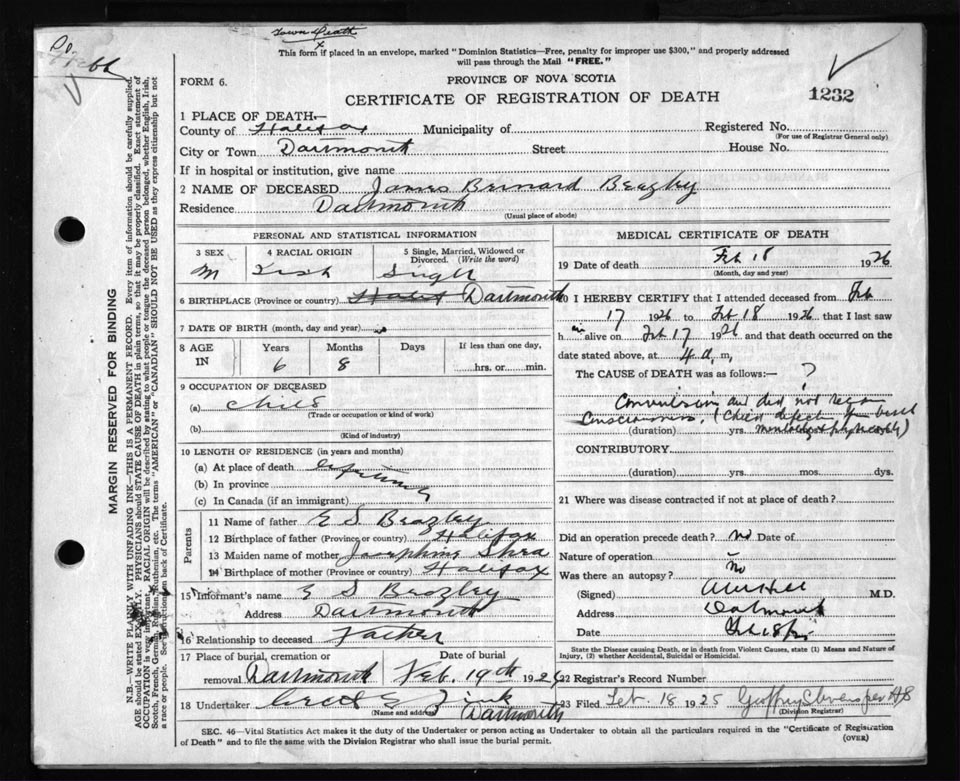 Town Death
x
This form if placed in an envelope, marked "Dominion Statistics—Free, penalty for improper use $300," and properly addressed
will pass through the Mail "FREE."
FORM 6.
PROVINCE OF NOVA SCOTIA
CERTIFICATE OF REGISTRATION OF DEATH
1232
1 PLACE OF DEATH—
County of Halifax Municipality of Registered No.
(For use of Registrar General only)
City or Town Dartmouth Street House No.
If in hospital or institution, give name
2 NAME OF DECEASED James Bernard Beazley
Residence Dartmouth
(Usual place of abode)
PERSONAL AND STATISTICAL INFORMATION
3 SEX 4 RACIAL ORIGIN 5 Single, Married, Widowed or
Divorced. (Write the word)
M Irish Single
6 BIRTHPLACE (Province or country) Halifax Dartmouth
7 DATE OF BIRTH (month, day and year)
8 AGE IN Years Months Days If less than one day,
6 8 hrs. or min.
9 OCCUPATION OF DECEASED
(a) Child
(Trade or occupation or kind of work)
(b)
(Kind of industry)
10 LENGTH OF RESIDENCE (in years and months)
(a) At place of death
(b) In province
(c) In Canada (if an immigrant)
Parents
11 Name of father E S Beazley
12 Birthplace of father (Province or country) Halifax
13 Maiden name of mother Josephine Shea
14 Birthplace of mother (Province or country) Halifax
15 Informant's name E S Beazley
Address Dartmouth
16 Relationship to deceased Father
17 Place of burial, cremation or Date of burial
removal Dartmouth Feb. 19th 1926
18 Undertaker Zink
(Name and address) Dartmouth
MEDICAL CERTIFICATE OF DEATH
19 Date of death Feb 18 1926
(Month, day and year)
20 I HEREBY CERTIFY that I attended deceased from Feb
17 1926 to Feb 18 1926 that I last saw
h im alive on Feb 17 1926 and that death occurred on the
date stated above, at 4 a. m,
The CAUSE of DEATH was as follows:— ?
Convulsion and did not regain
Consciousness. (Child defective from birth
(duration) yrs. mentally & physically)
CONTRIBUTORY
(duration) yrs. mos. dys.
21 Where was disease contracted if not at place of death?
Did an operation precede death? no Date of
Nature of operation
Was there an autopsy? No
(Signed) M.D.
Address Dartmouth
Date Feb 18
State the Disease causing Death, or in death from Violent Causes, state (1) Means and Nature of
Injury, (2) whether Accidental, Suicidal or Homicidal.
22 Registrar's Record Number
23 Filed Feb. 18 1925 Geoffrey Stevens per HS
(Division Registrar)
SEC. 46—Vital Statistics Act makes it the duty of the Undertaker or person acting as Undertaker to obtain all the particulars required in the "Certificate of Registration
of Death" and to file the same with the Division Registrar who shall issue the burial permit. (OVER)
MARGIN RESERVED FOR BINDING
N.B.—WRITE PLAINLY WITH UNFADING INK—THIS IS A PERMANENT RECORD. Every item of information should be carefully supplied.
AGE should be stated EXACTLY. PHYSICIANS should STATE CAUSE OF DEATH in plain terms, so that it may be properly classified. Exact statement of
OCCUPATION is very important. RACIAL ORIGIN will be described by stating to what people or tongue the deceased person belonged, whether English, Irish,
Scotch, French, German, Russian, Ruthenian, etc. The terms "AMERICAN" or "CANADIAN" SHOULD NOT BE USED as they express citizenship but not
a race or people. See instructions on back of Certificate.